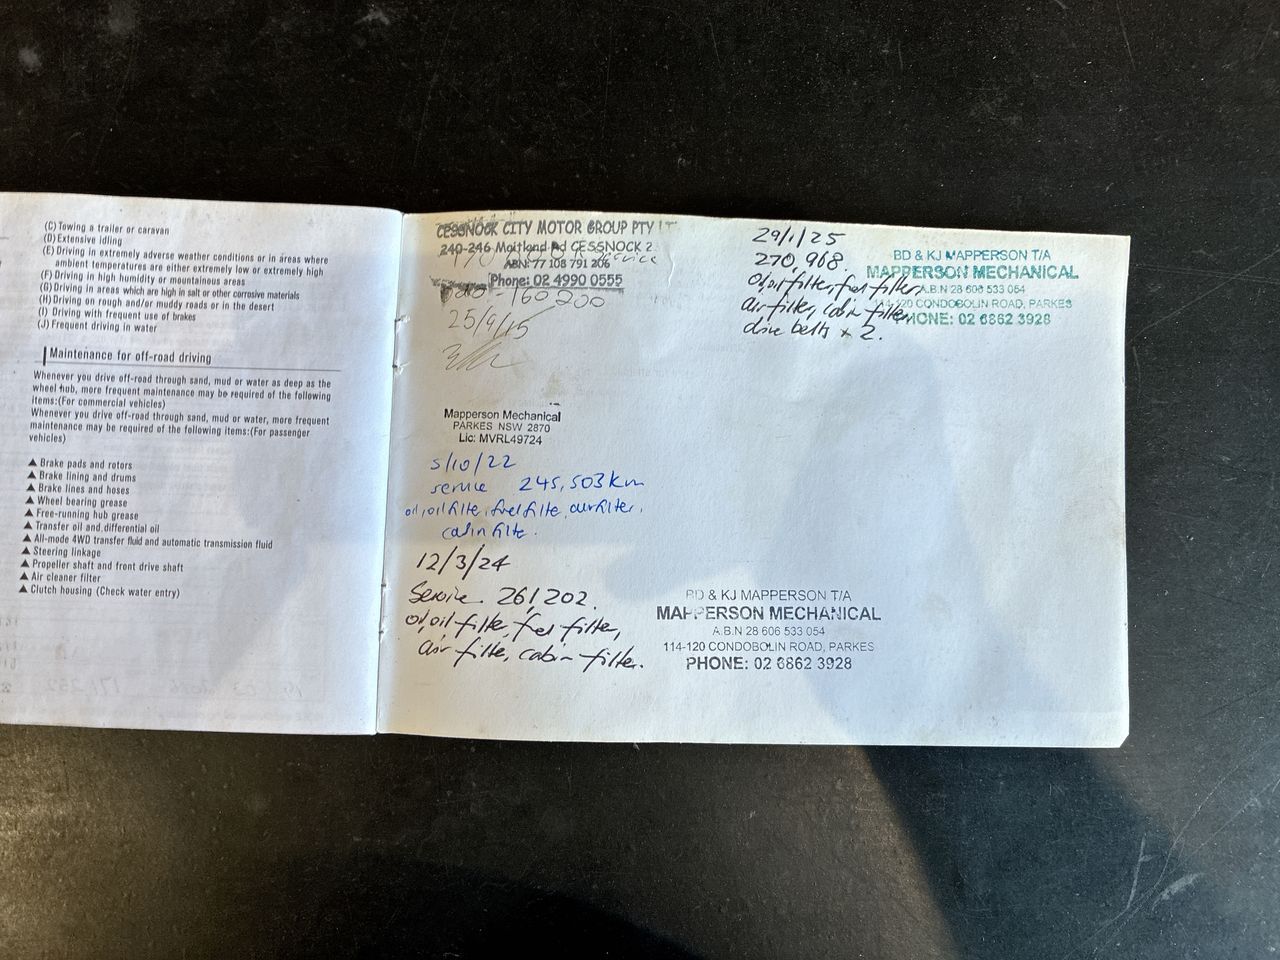 (C) Towing a trailer or caravan
(D) Extensive idling
(E) Driving in extremely adverse weather conditions or in areas where
ambient temperatures are either extremely low or extremely high
(F) Driving in high humidity or mountainous areas
(G) Driving in areas which are high in salt or other corrosive materials
(H) Driving on rough and/or muddy roads or in the desert
(I) Driving with frequent use of brakes
(J) Frequent driving in water
Maintenance for off-road driving
Whenever you drive off-road through sand, mud or water as deep as the
wheel hub, more frequent maintenance may be required of the following
items:(For commercial vehicles)
Whenever you drive off-road through sand, mud or water, more frequent
maintenance may be required of the following items:(For passenger
vehicles)
▲ Brake pads and rotors
▲ Brake lining and drums
▲ Brake lines and hoses
▲ Wheel bearing grease
▲ Free-running hub grease
▲ Transfer oil and differential oil
▲ All-mode 4WD transfer fluid and automatic transmission fluid
▲ Steering linkage
▲ Propeller shaft and front drive shaft
▲ Air cleaner filter
▲ Clutch housing (Check water entry)
CESSNOCK CITY MOTOR GROUP PTY
240-246 Maitland Rd CESSNOCK 2
ABN: 77 108 791 206
service
Phone: 02 4990 0555
160 200
25/9/15
Mapperson Mechanical
PARKES NSW 2870
Lic: MVRL49724
5/10/22
service 245,503km
oil, oil filte, fuel filte, air filter,
cabin filte.
12/3/24
Service 261,202.
oil, oil filter, fuel filter,
air filte, cabin filter.
BD & KJ MAPPERSON T/A
MAPPERSON MECHANICAL
A.B.N 28 606 533 054
114-120 CONDOBOLIN ROAD, PARKES
PHONE: 02 6862 3928
29/1/25
270,968
oil, oil filter, fuel filter,
air filter, cabin filter,
drive belts x 2.
BD & KJ MAPPERSON T/A
MAPPERSON MECHANICAL
A.B.N 28 606 533 054
114-120 CONDOBOLIN ROAD, PARKES
PHONE: 02 6862 3928